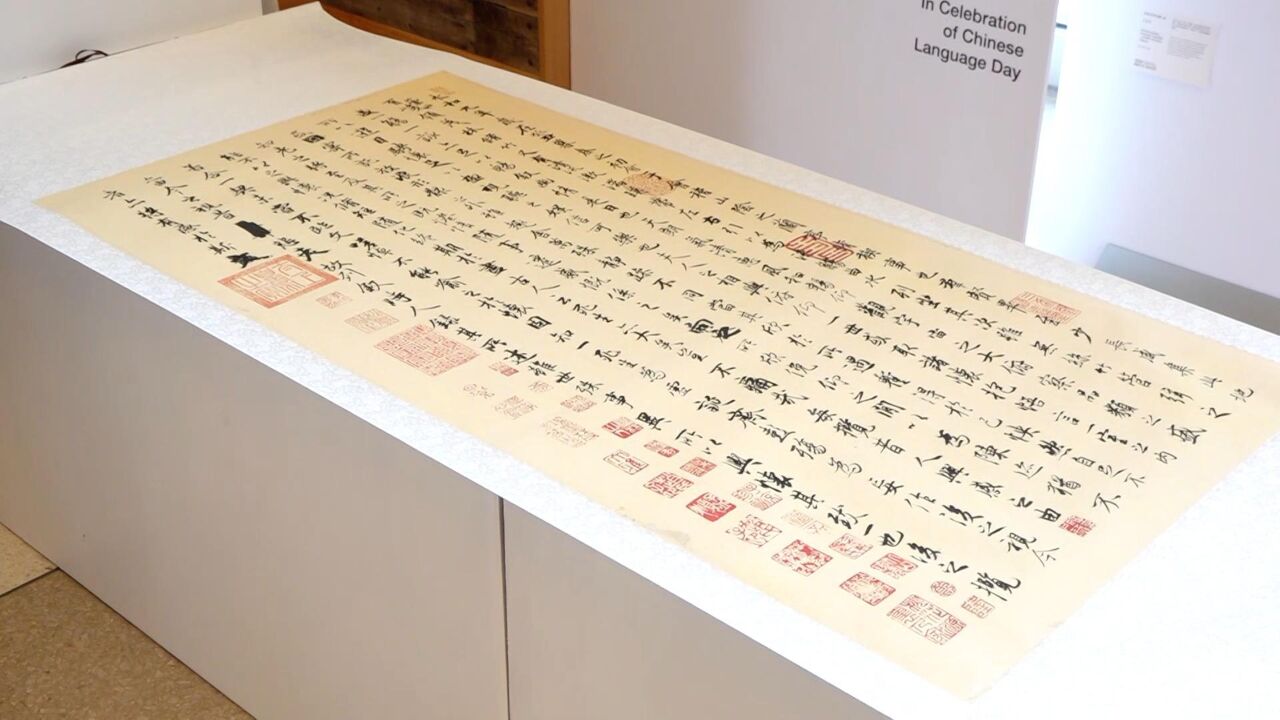 In Celebration
of Chinese
Language Day
永和九年歲在癸丑暮春之初會于會稽山陰之蘭亭脩禊事也群賢畢至少長咸集此地
有崇山峻領茂林脩竹又有清流激湍暎帶左右引以為流觴曲水列坐其次雖無絲竹管弦之
盛一觴一詠亦足以暢敘幽情是日也天朗氣清惠風和暢仰觀宇宙之大俯察品類之盛
所以遊目騁懷足以極視聽之娛信可樂也夫人之相與俯仰一世或取諸懷抱悟言一室之內
或因寄所託放浪形骸之外雖趣舍萬殊靜躁不同當其欣於所遇暫得於己怏然自足不
知老之將至及其所之既惓情隨事遷感慨係之矣向之所欣俛仰之閒以為陳迹猶不
能不以之興懷況脩短隨化終期於盡古人云死生亦大矣豈不痛哉每攬昔人興感之由
若合一契未嘗不臨文嗟悼不能喻之於懷固知一死生為虛誕齊彭殤為妄作後之視今
亦由今之視昔悲夫故列敘時人錄其所述雖世殊事異所以興懷其致一也後之攬
者亦將有感於斯文